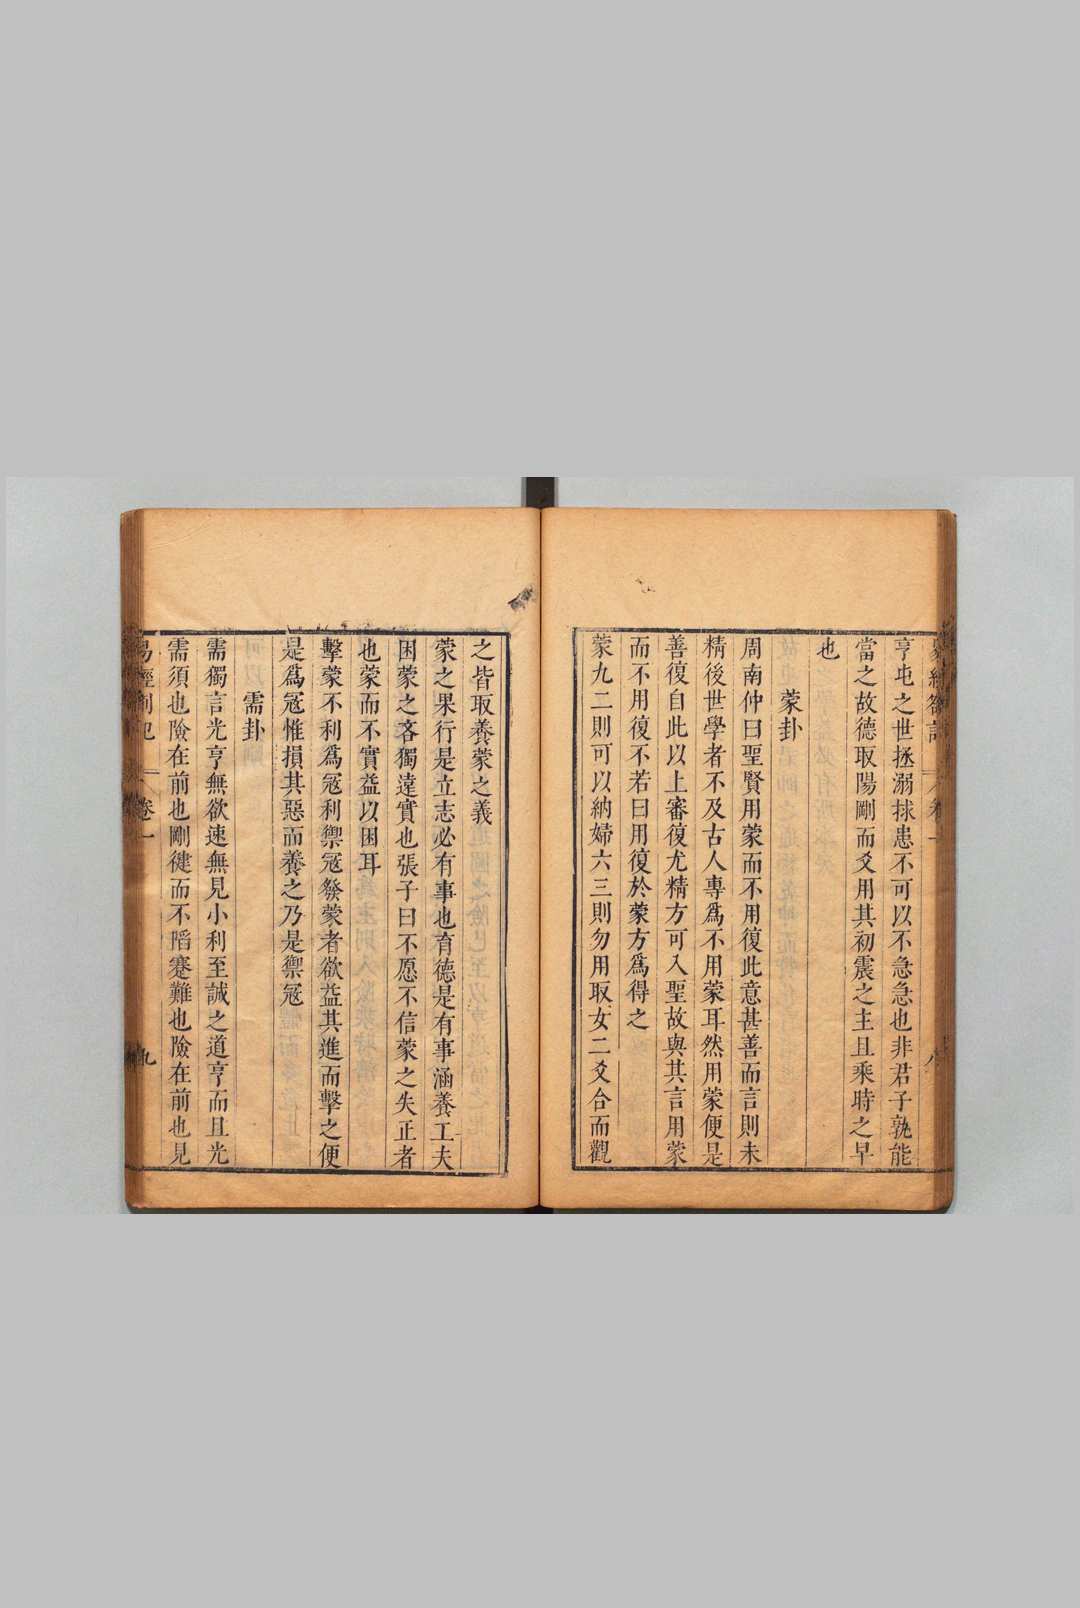 亨屯之世拯溺捄患不可以不急急也非君子孰能
當之故德取陽剛而爻用其初震之主且乘時之早
也
蒙卦
周南仲曰聖賢用蒙而不用復此意甚善而言則未
精後世學者不及古人專爲不用蒙耳然用蒙便是
善復自此以上審復尤精方可入聖故與其言用蒙
而不用復不若曰用復於蒙方爲得之
蒙九二則可以納婦六三則勿用取女二爻合而觀
之皆取養蒙之義
蒙之果行是立志必有事也育德是有事涵養工夫
困蒙之吝獨遠實也張子曰不愿不信蒙之失正者
也蒙而不實益以困耳
擊蒙不利爲冦利禦冦發蒙者欲益其進而擊之便
是爲冦惟損其惡而養之乃是禦冦
需卦
需獨言光亨無欲速無見小利至誠之道亨而且光
需須也險在前也剛健而不陷蹇難也險在前也見
卷一
九